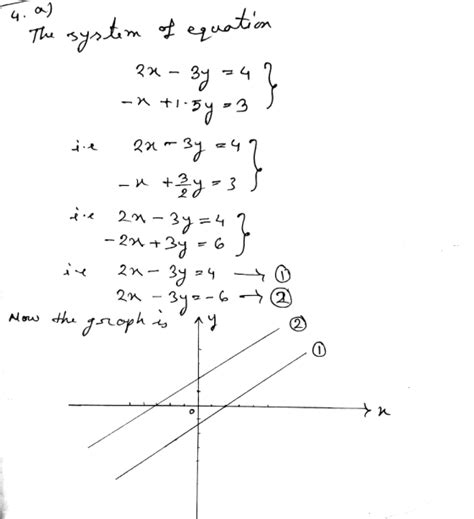 4. a)
The system of equation
2x - 3y = 4 }
-x + 1.5y = 3
i.e 2x - 3y = 4 }
-x + 3/2 y = 3
i.e 2x - 3y = 4 }
-2x + 3y = 6
i.e 2x - 3y = 4 → ①
2x - 3y = -6 → ②
Now the graph is
y
②
①
0
x